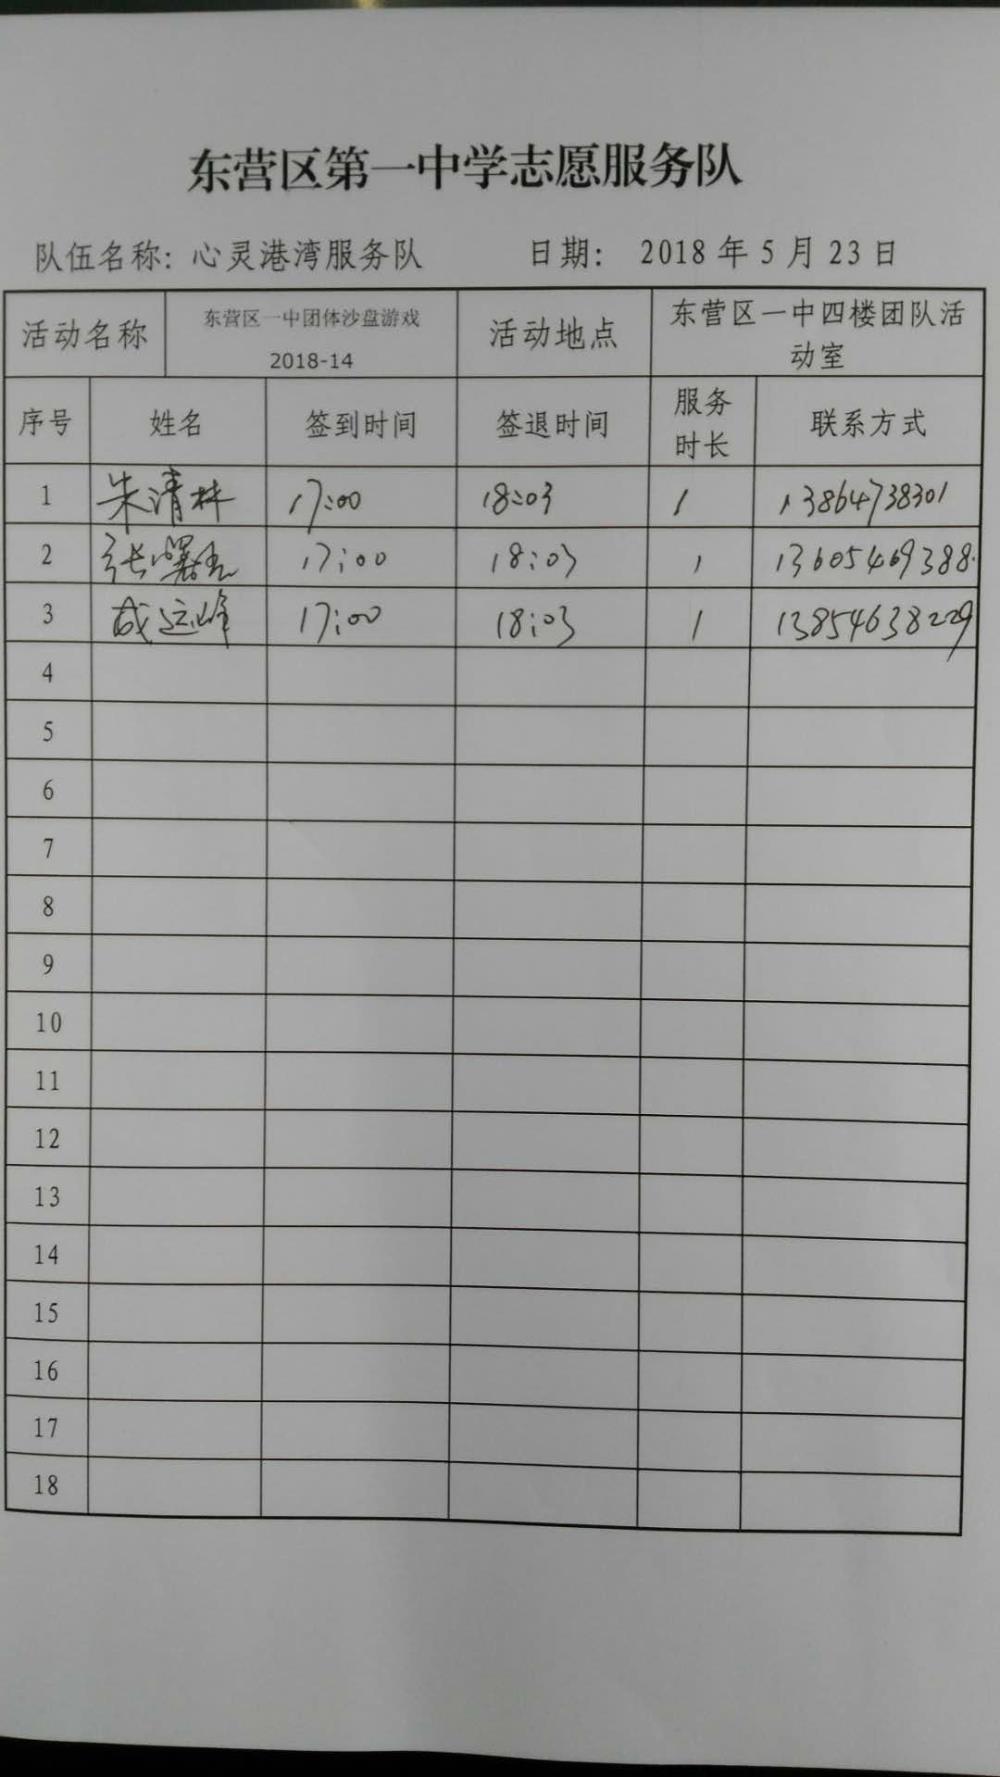 东营区第一中学志愿服务队
队伍名称: 心灵港湾服务队 日期: 2018 年 5 月 23 日
活动名称 东营区一中团体沙盘游戏 2018-14 活动地点 东营区一中四楼团队活动室
序号 姓名 签到时间 签退时间 服务时长 联系方式
1 朱清林 17:00 18:03 1 13864738301
2 张曙 17:00 18:03 1 13605469388
3 成远峰 17:00 18:03 1 13854638229
4
5
6
7
8
9
10
11
12
13
14
15
16
17
18